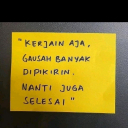 "KERJAIN AJA,
GAUSAH BANYAK
DIPIKIRIN.
NANTI JUGA
SELESAI"